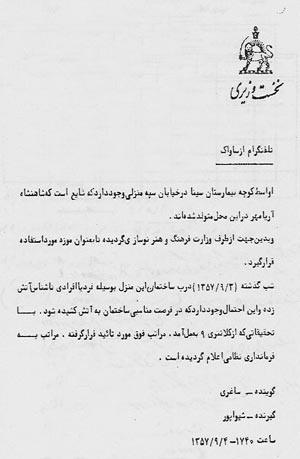 نخست وزیری
تلفنگرام از ساواک
اواسط کوچه بیمارستان سینا در خیابان سپه منزلی وجود دارد که شایع است که شاهنشاه
آریامهر در این محل متولد شده اند .
وبدین جهت از طرف وزارت فرهنگ و هنر نوسازی گردیده تا بعنوان موزه مورد استفاده
قرار گیرد .
شب گذشته (۱۳۵۷/۹/۳) درب ساختمان این منزل بوسیله فرد یا افرادی ناشناس آتش
زده و این احتمال وجود دارد که در فرصت مناسبی ساختمان به آتش کشیده شود . با
تحقیقاتی که از کلانتری ۹ بعمل آمد . مراتب فوق مورد تائید قرار گرفته . مراتب به
فرمانداری نظامی اعلام گردیده است .
گوینده - ساغری
گیرنده - شیواپور
ساعت ۱۷۴۰-۱۳۵۷/۹/۴